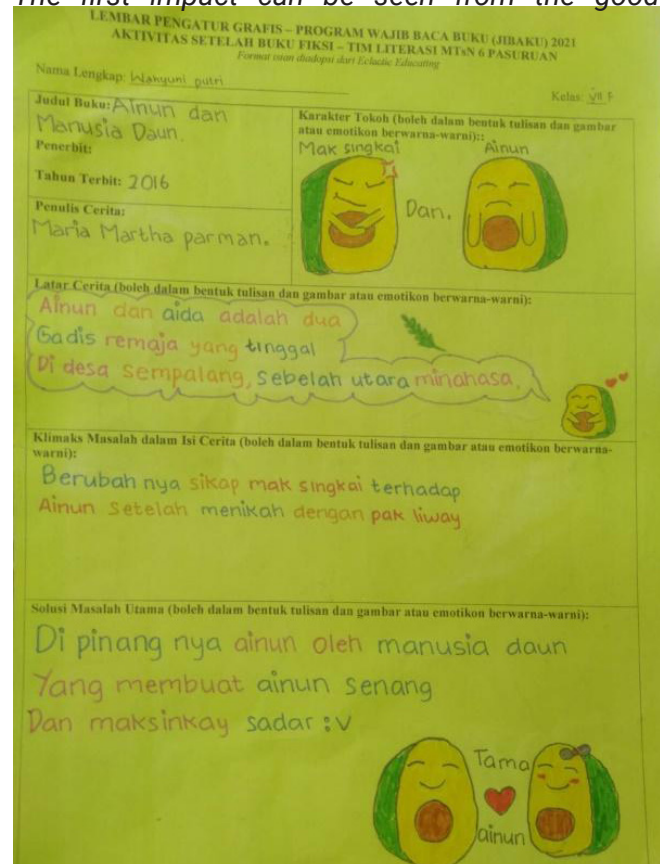 The first impact can be seen from the good
LEMBAR PENGATUR GRAFIS – PROGRAM WAJIB BACA BUKU (JIBAKU) 2021
AKTIVITAS SETELAH BUKU FIKSI – TIM LITERASI MTsN 6 PASURUAN
Format diadopsi dari Eclactic Educating
Nama Lengkap: Wahyuni putri
Kelas: VII F
Judul Buku: Ainun dan
Manusia Daun.
Penerbit:
Tahun Terbit: 2016
Penulis Cerita:
Maria Martha parman.
Karakter Tokoh (boleh dalam bentuk tulisan dan gambar
atau emotikon berwarna-warni)::
Mak singkai Ainun
Dan.
Latar Cerita (boleh dalam bentuk tulisan dan gambar atau emotikon berwarna-warni):
Ainun dan aida adalah dua
Gadis remaja yang tinggal
Di desa Sempalang, Sebelah utara minahasa.
Klimaks Masalah dalam Isi Cerita (boleh dalam bentuk tulisan dan gambar atau emotikon berwarna-
warni):
Berubah nya sikap mak singkai terhadap
Ainun Setelah menikah dengan pak liway
Solusi Masalah Utama (boleh dalam bentuk tulisan dan gambar atau emotikon berwarna-warni):
Di pinang nya ainun oleh manusia daun
Yang membuat ainun senang
Dan maksinkay sadar :v
Tama
ainun